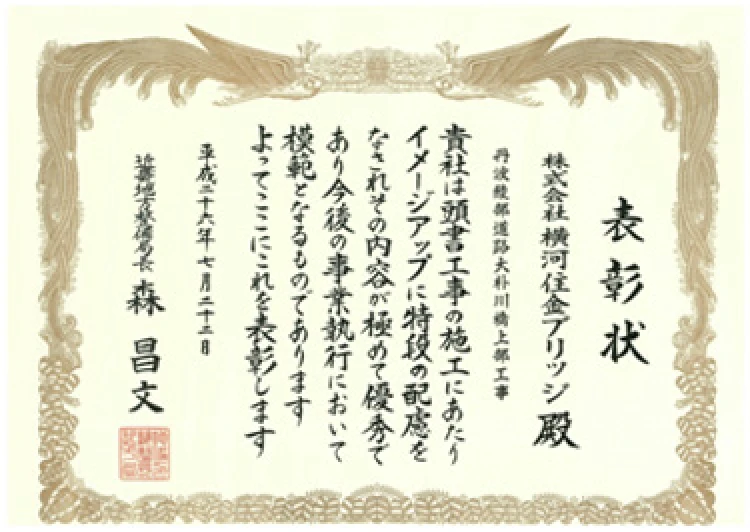 表彰状
株式会社 横河住金ブリッジ 殿
丹波綾部道路大朴川橋上部工事
貴社は頭書工事の施工にあたり
イメージアップに特段の配慮を
なされその内容が極めて優秀で
あり今後の事業執行において
模範となるものであります
よってここにこれを表彰します
平成二十六年七月二十二日
近畿地方整備局長 森 昌文